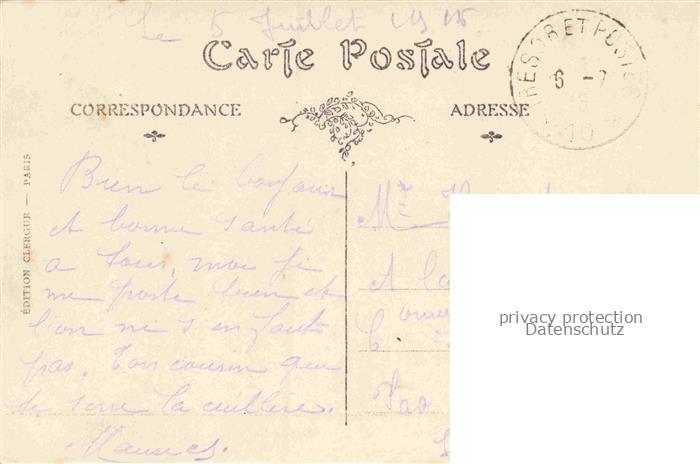 Le 5 Juillet 1915
Carte Postale
TRESOR ET POSTES
6 -7
15
10
CORRESPONDANCE
ADRESSE
ÉDITION CLERGUE — PARIS
Bien le bonjour
et bonne santé
a tous, moi je
me porte bien et
l'on ne s'en
pas. Ton cousin qui
te serre la cuillère.
Maurice
A la
privacy protection
Datenschutz